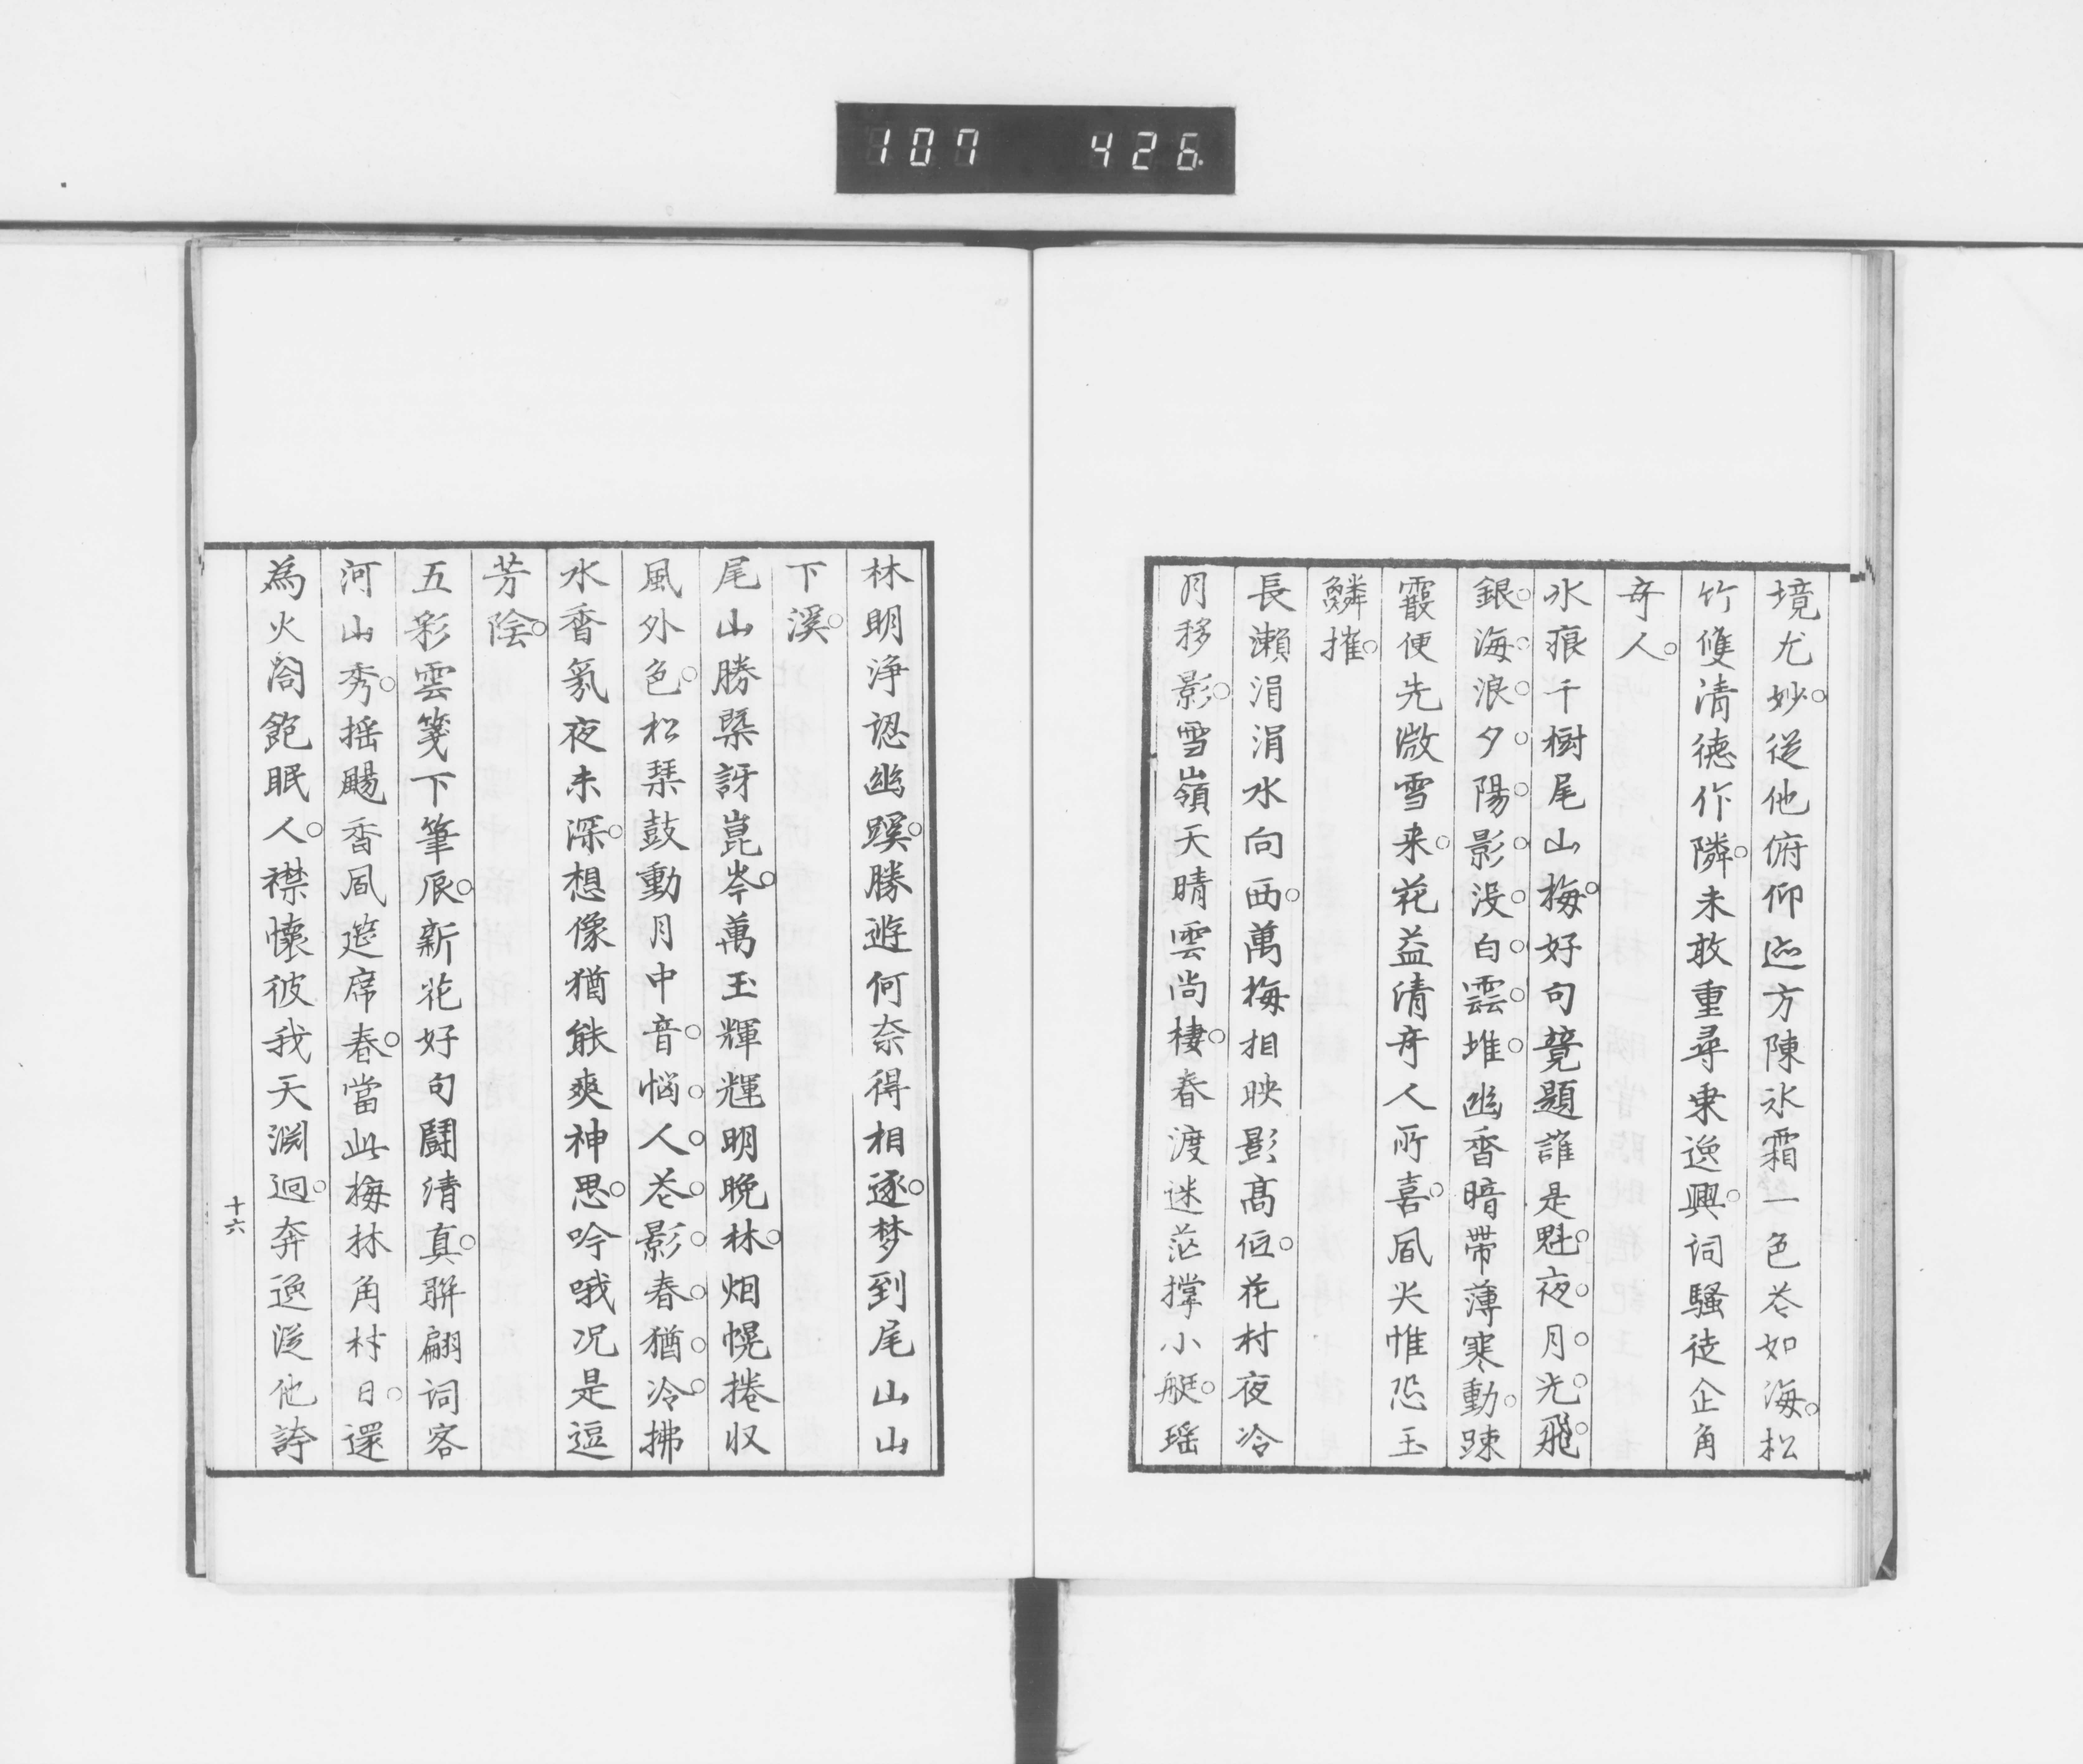 107 426
境尤妙從他俯仰巡方陳氷霜一色芲如海松
竹雙清徳作隣未敢重尋東逸興詞騷徒企角
竒人
氷痕千樹尾山梅好句競題誰是魁夜月光飛
銀海浪夕陽影没白雲堆幽香暗帶薄寒動踈
霰便先微雪来花益清竒人所喜風尖惟恐玉
鱗摧
長瀬涓涓水向西萬梅相映影髙低花村夜冷
月移影雪嶺天晴雲尚棲春渡迷茫撑小艇瑶
林明浄認幽蹊勝遊何奈得相逐梦到尾山山
下溪
尾山勝槩訝崑岑萬玉輝輝明晩林烟幌捲収
風外色松琹鼓動月中音悩人芲影春猶冷拂
水香氣夜未深想像猶能爽神思吟哦况是逗
芳陰
五彩雲箋下筆辰新花好句闘清真聨翩詞客
河山秀揺颺香風筵席春當此梅林角村日還
為火閤飽眠人襟懷彼我天渊迥奔逸從他誇
十六